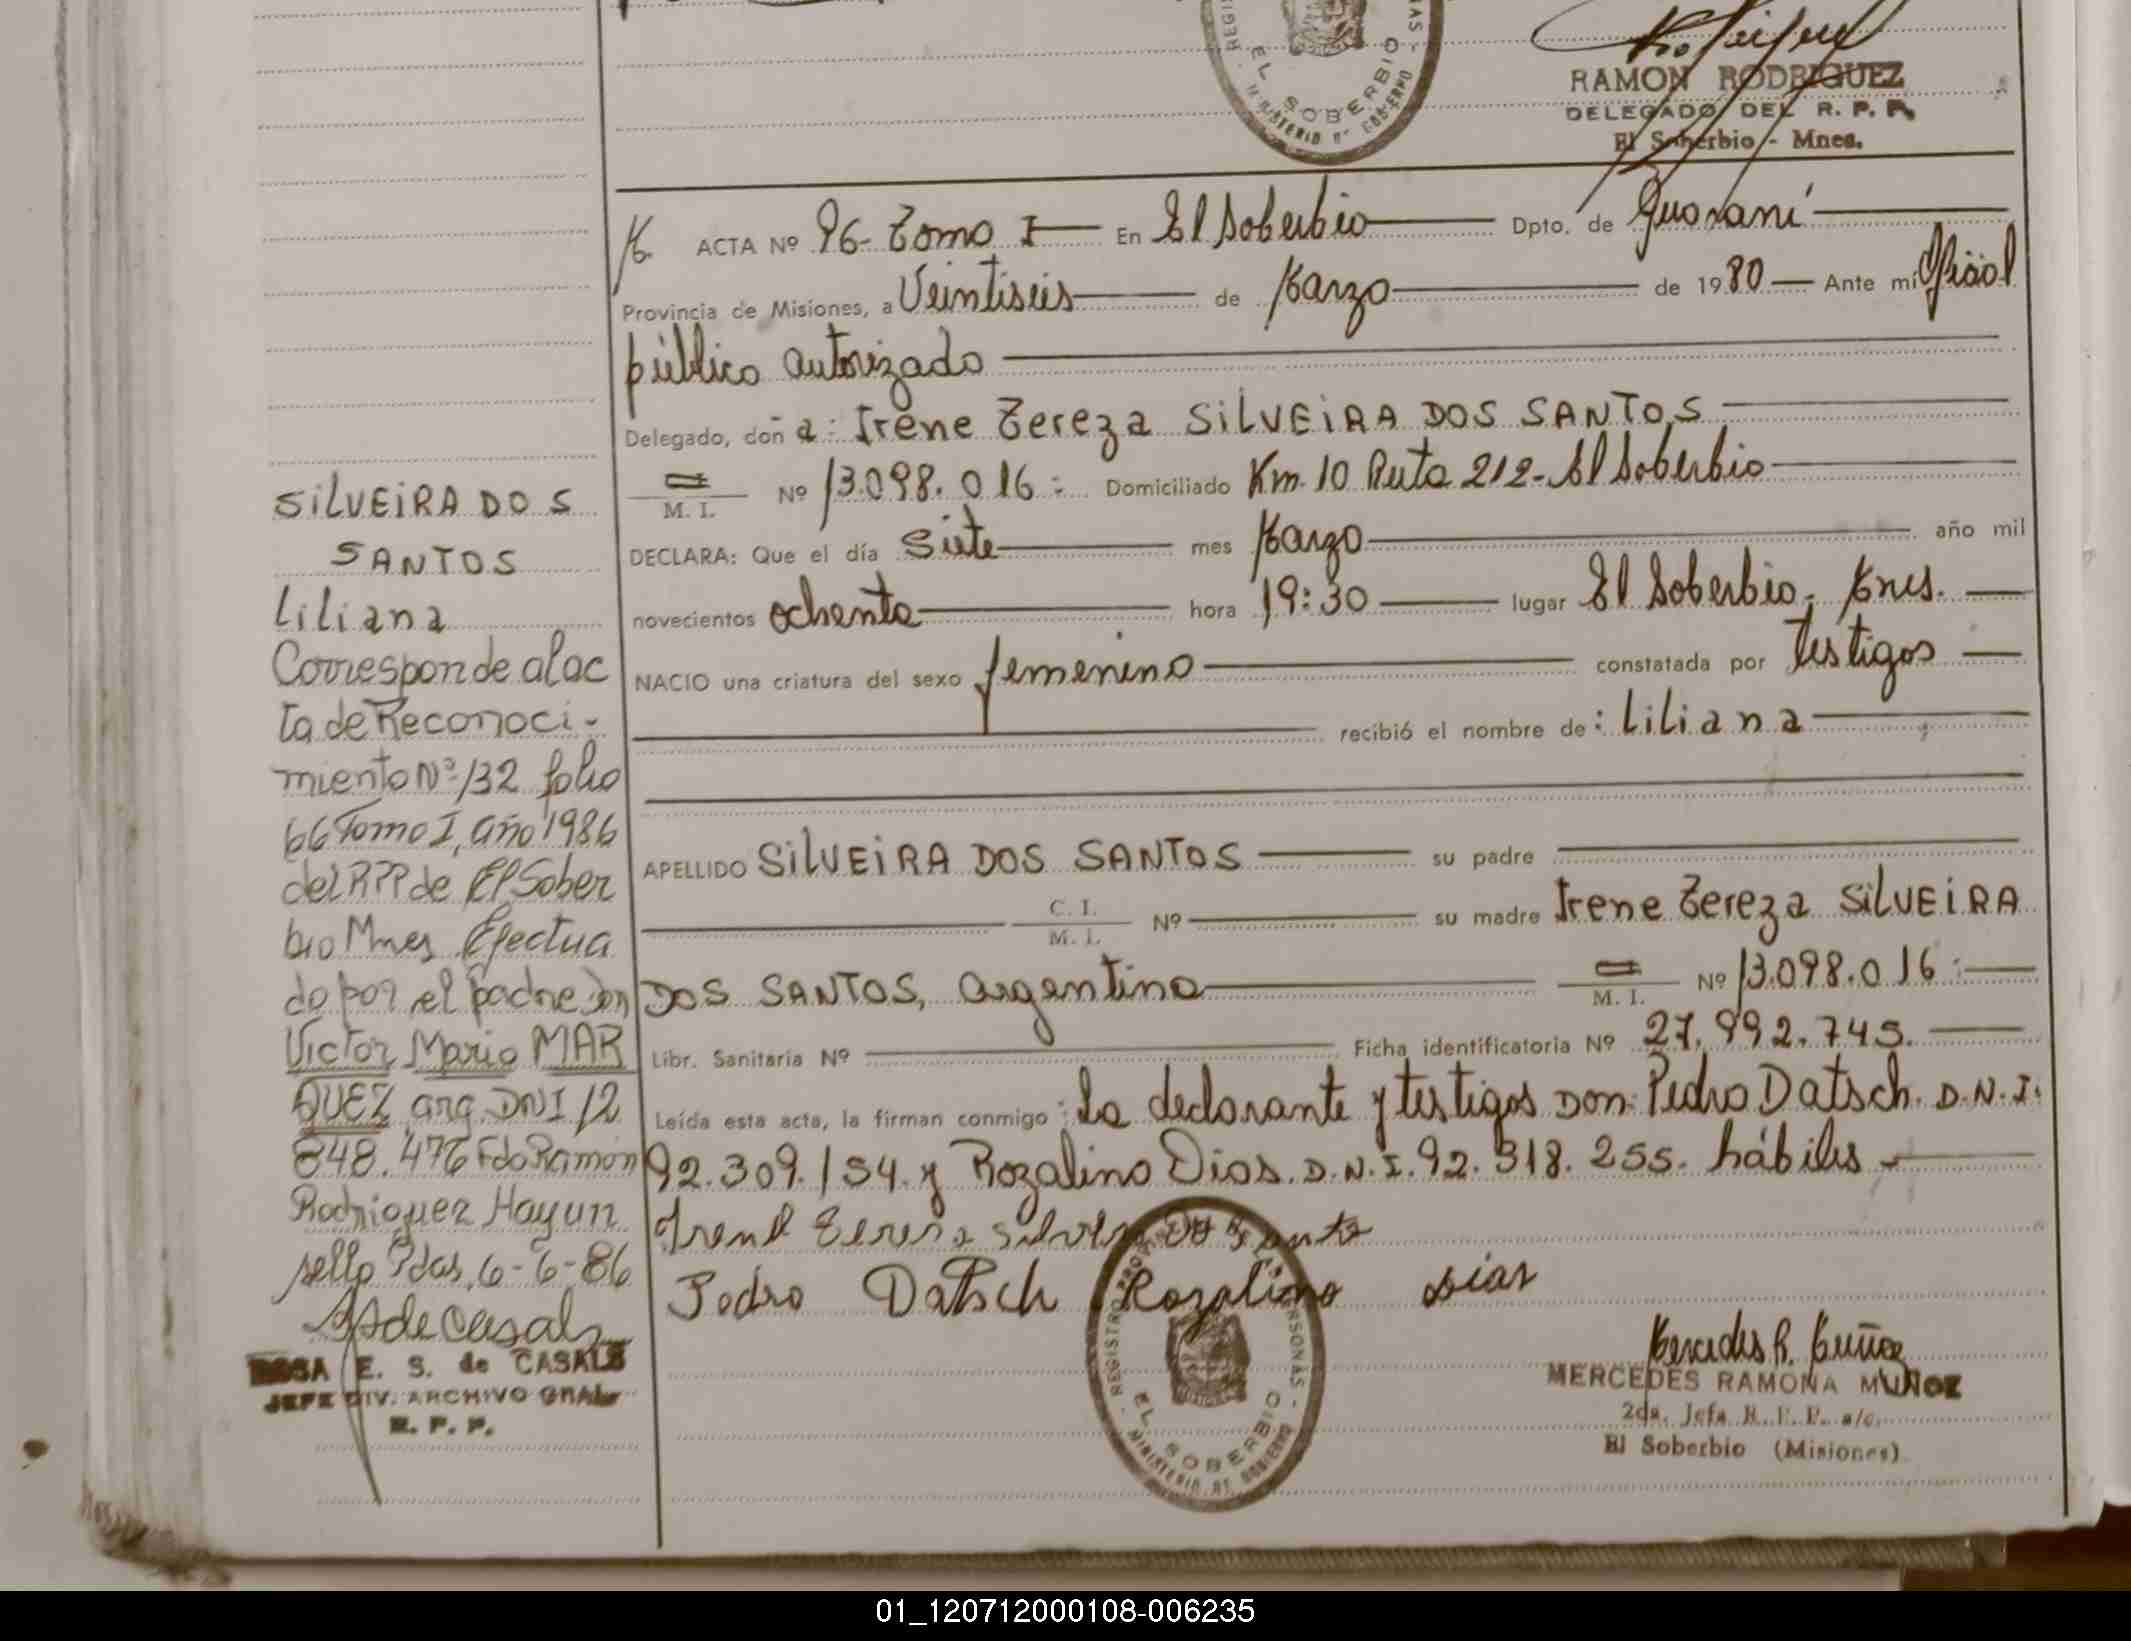 EL SOBERBIO
MINISTERIO DE GOBIERNO
RAMON RODRIGUEZ
DELEGADO DEL R. P. P.
El Soberbio - Mnes.
SILVEIRA DOS
SANTOS
Liliana
Corresponde al ac
ta de Reconoci-
miento Nº 132 folio
66 Tomo I, año 1986
del RPP de El Sober
bio Mnes Efectua
do por el padre Dn
Victor Mario MAR
QUEZ, arg. DNI 12
848.476 Fdo Ramon
Rodriguez Hay un
sello Pdas, 6-6-86
ROSA E. S. de CASALS
JEFE DIV. ARCHIVO GRAL.
R. P. P.
ACTA Nº 96- Tomo I — En El Soberbio — Dpto. de Guaraní —
Provincia de Misiones, a Veintiseis — de Marzo — de 1980 — Ante mi Oficial
público autorizado —
Delegado, doña: Irene Tereza SILVEIRA DOS SANTOS —
M. I. Nº 13.098.016 - Domiciliado Km. 10 Ruta 212 - El Soberbio —
DECLARA: Que el día Siete — mes Marzo — año mil
novecientos ochenta — hora 19:30 — lugar El Soberbio, Mnes. —
NACIO una criatura del sexo femenino — constatada por testigos —
— recibió el nombre de: Liliana —
APELLIDO SILVEIRA DOS SANTOS — su padre —
— C. I. M. I. Nº — su madre Irene Tereza SILVEIRA
DOS SANTOS, argentina — M. I. Nº 13.098.016 -
Libr. Sanitaria Nº — Ficha identificatoria Nº 27.992.745. —
Leída esta acta, la firman conmigo: La declarante y testigos DON: Pedro Datsch. D.N.I.
92.309.154. y Rozalino Dias. D.N.I. 92.318.255. hábiles —
Pedro Datsch Rozalino Dias
REGISTRO PROVINCIAL DE LAS PERSONAS
EL SOBERBIO
MINISTERIO DE GOBIERNO
Mercedes R. Muñoz
MERCEDES RAMONA MUÑOZ
2da. Jefa R. P. P. a/c.
El Soberbio (Misiones).
01_120712000108-006235